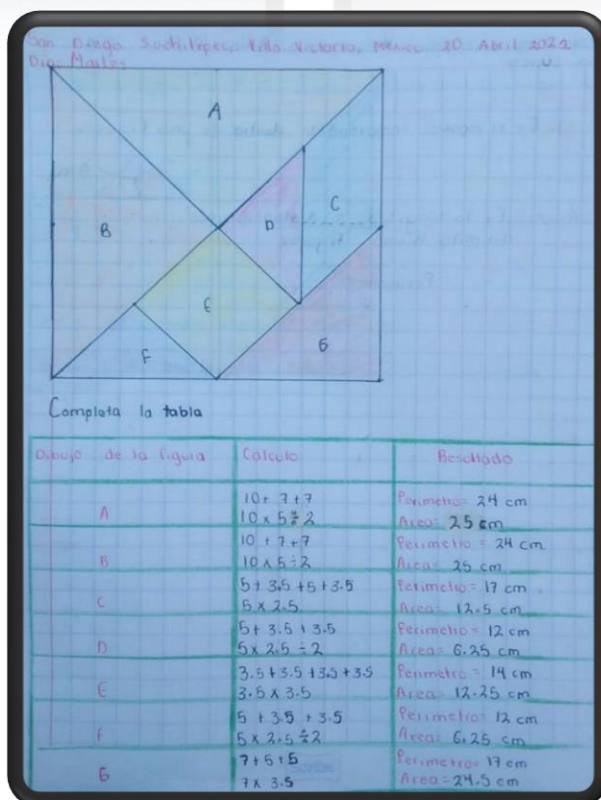 San Diego Suchitepec, Villa Victoria, México 20 Abril 2021
Dia: Martes
A
B
C
D
E
F
G
Completa la tabla
Dibujo de la figura Calculo Resultado
A 10+ 7+7 Perimetro= 24 cm
10 x 5÷2 Area= 25 cm
B 10 + 7+7 Perimetro = 24 cm
10 x 5÷2 Area= 25 cm
C 5+ 3.5 +5+3.5 Perimetro= 17 cm
5 x 2.5 Area= 12.5 cm
D 5+ 3.5 + 3.5 Perimetro= 12 cm
5x 2.5 ÷2 Area= 6.25 cm
E 3.5+3.5+3.5+3.5 Perimetro= 14 cm
3.5 x 3.5 Area= 12.25 cm
F 5 + 3.5 + 3.5 Perimetro= 12 cm
5 x 2.5÷2 Area= 6.25 cm
G 7+5+5 Perimetro= 17 cm
7x 3.5 Area=24.5 cm